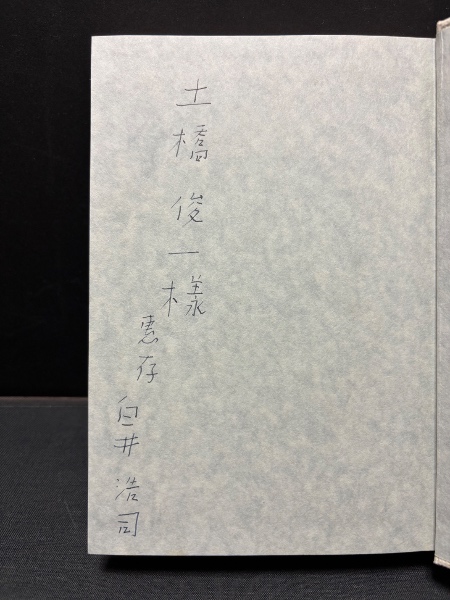 土橋俊一様
恵存
白井浩司